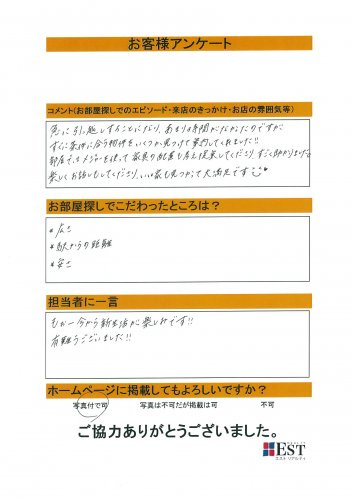 お客様アンケート
コメント(お部屋探しでのエピソード・来店のきっかけ・お店の雰囲気等)
急に引っ越しすることになり、あまり時間がなかったのですが、
すぐに条件に合う物件をいくつか見つけて案内してくれました!!
部屋でメジャーを使って家具の配置も考え提案してくださり、すごく助かりました。
楽しくお話もしてくださり、いい家も見つかって大満足です
お部屋探しでこだわったところは?
*広さ
*駅からの距離
*安さ
担当者に一言
もう今から新生活が楽しみです!!
有難うございました!!
ホームページに掲載してもよろしいですか?
写真付で可 写真は不可だが掲載は可 不可
ご協力ありがとうございました。
EST
エスト リアルティ